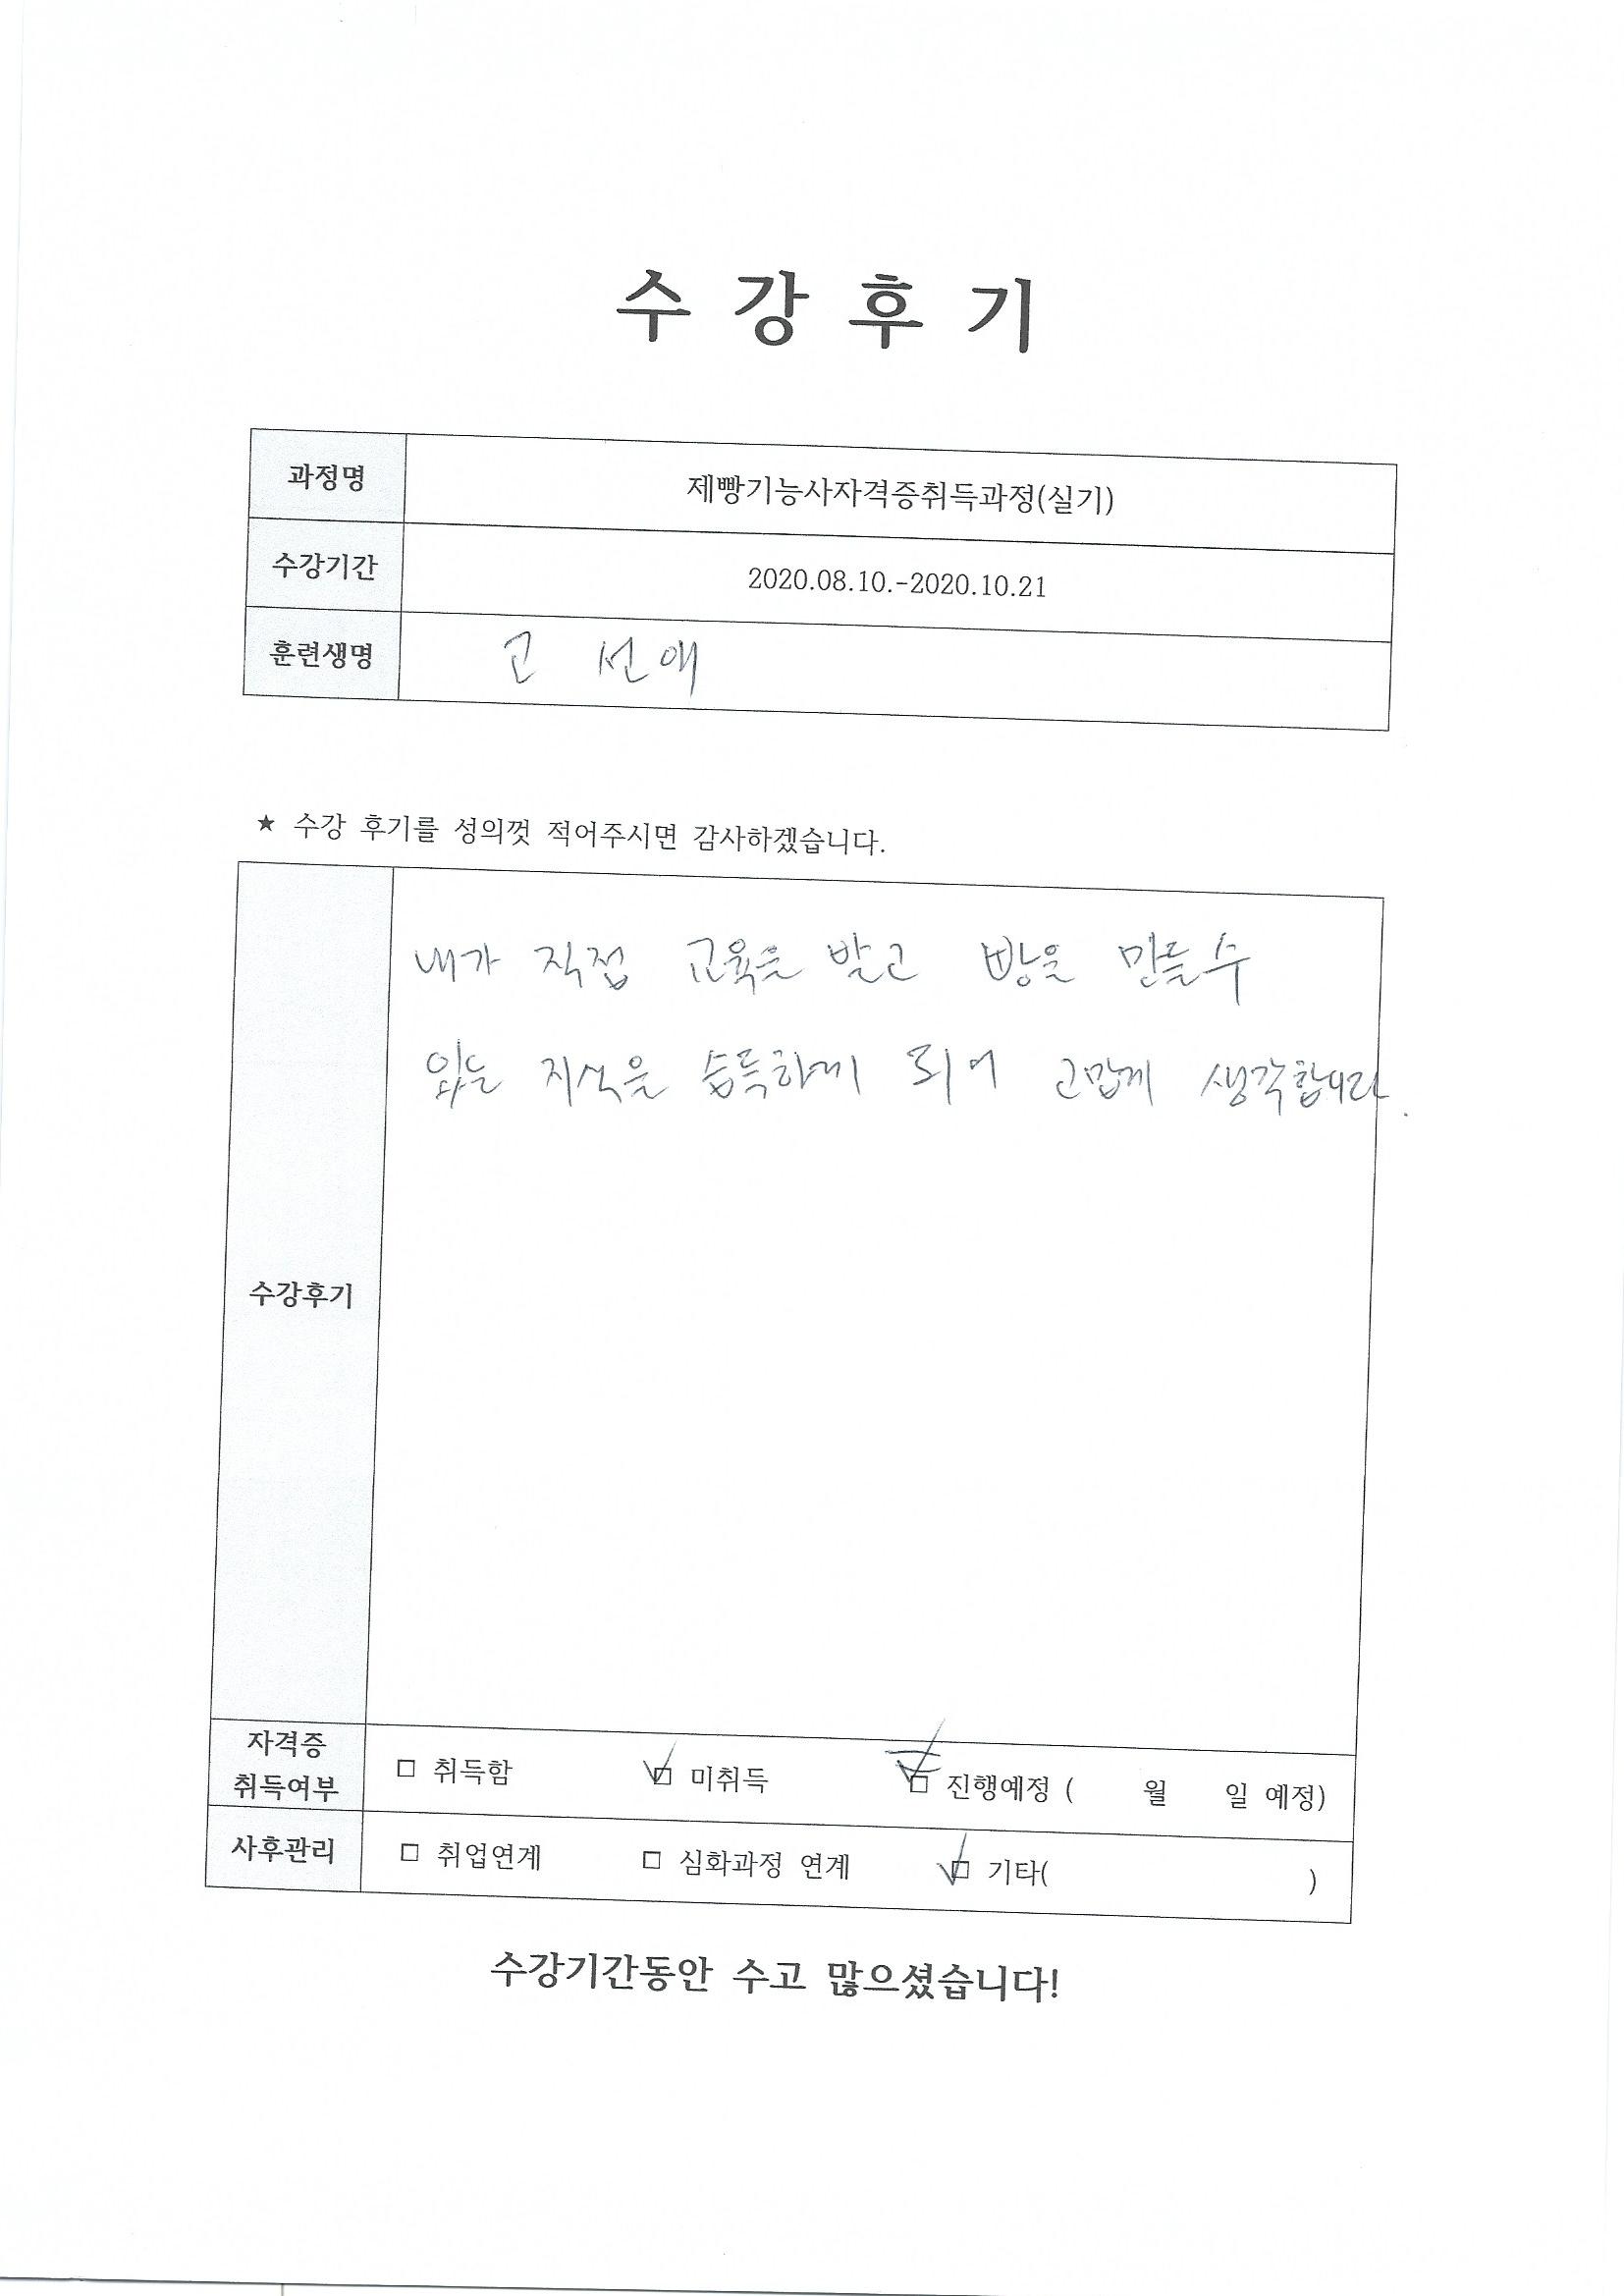 수 강 후 기
과정명 제빵기능사자격증취득과정(실기)
수강기간 2020.08.10.-2020.10.21
훈련생명 고 선애
★ 수강 후기를 성의껏 적어주시면 감사하겠습니다.
내가 직접 교육을 받고 빵을 만들수
있는 지식을 습득하게 되어 고맙게 생각합니다.
수강후기
자격증
취득여부 □ 취득함 ☑ 미취득 □ 진행예정 ( 월 일 예정)
사후관리 □ 취업연계 □ 심화과정 연계 ☑ 기타( )
수강기간동안 수고 많으셨습니다!